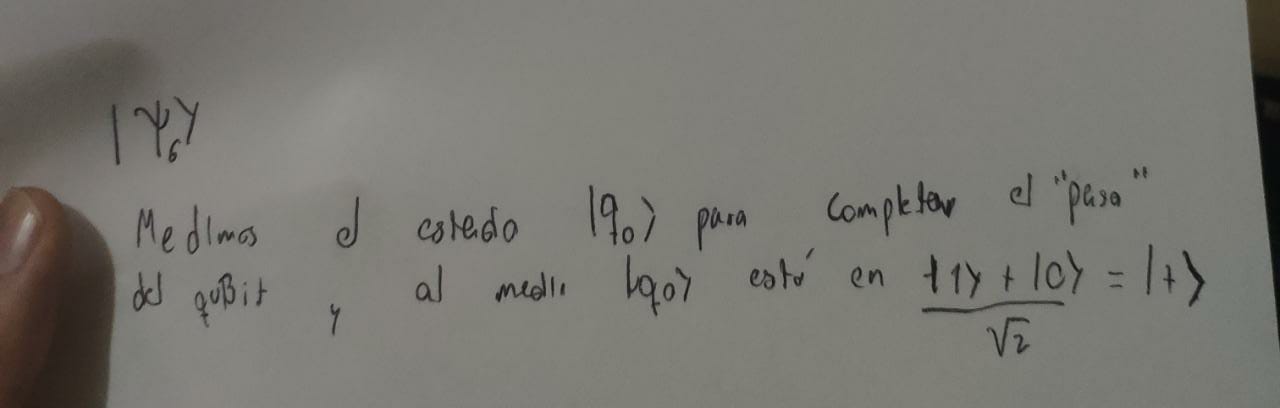 |Ψ₆⟩
Medimos el estado |q₀⟩ para completar el "paso"
del quBit y al medir |q₀⟩ está en (|1⟩ + |0⟩)/√2 = |+⟩